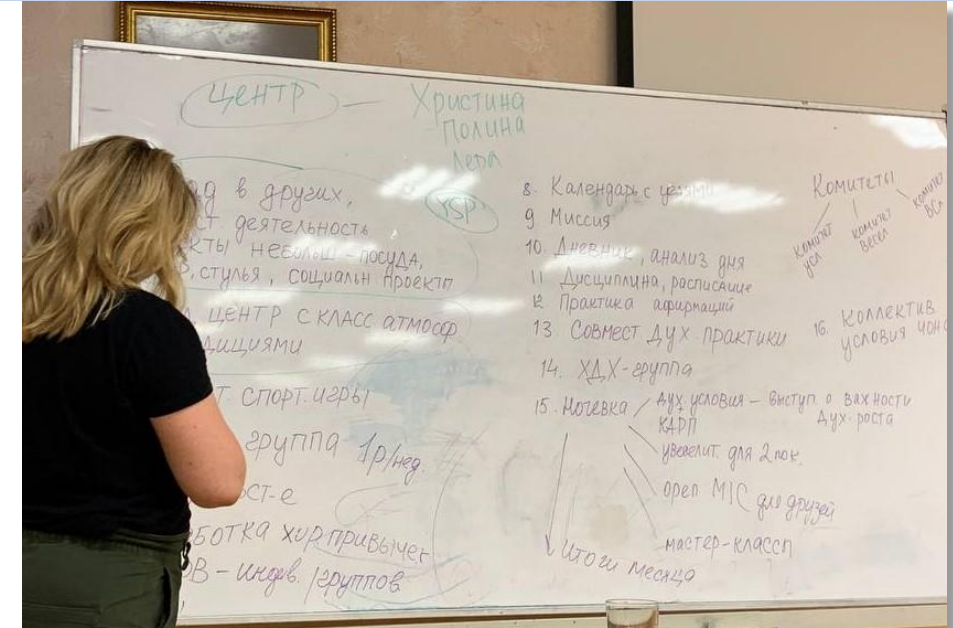 ЦЕНТР — Христина
Полина
Лера
в других,
деятельность
небольш - посуда,
, стулья, социальн проектп
ЦЕНТР С КЛАСС АТМОСФ
YSP
СПОРТ. ИГРЫ
группа 1р/нед.
ст-е
хир привычек
- индив. / группов
8. Календарь с
9 Миссия
10. Дневник, анализ дня
11 Дисциплина, расписание
12 Практика афирмаций
13 Совмест Дух. практики
14. ХДХ-группа
15. Ночевка
дух. условия - выступ. о важности
Дух. роста
КАРП
увеселит. для 2 пок.
open MIC для друзей
мастер-классп
Итоги месяца
Комитеты
комитет
усл
комитет
весел
комитет
16. Коллектив
условия